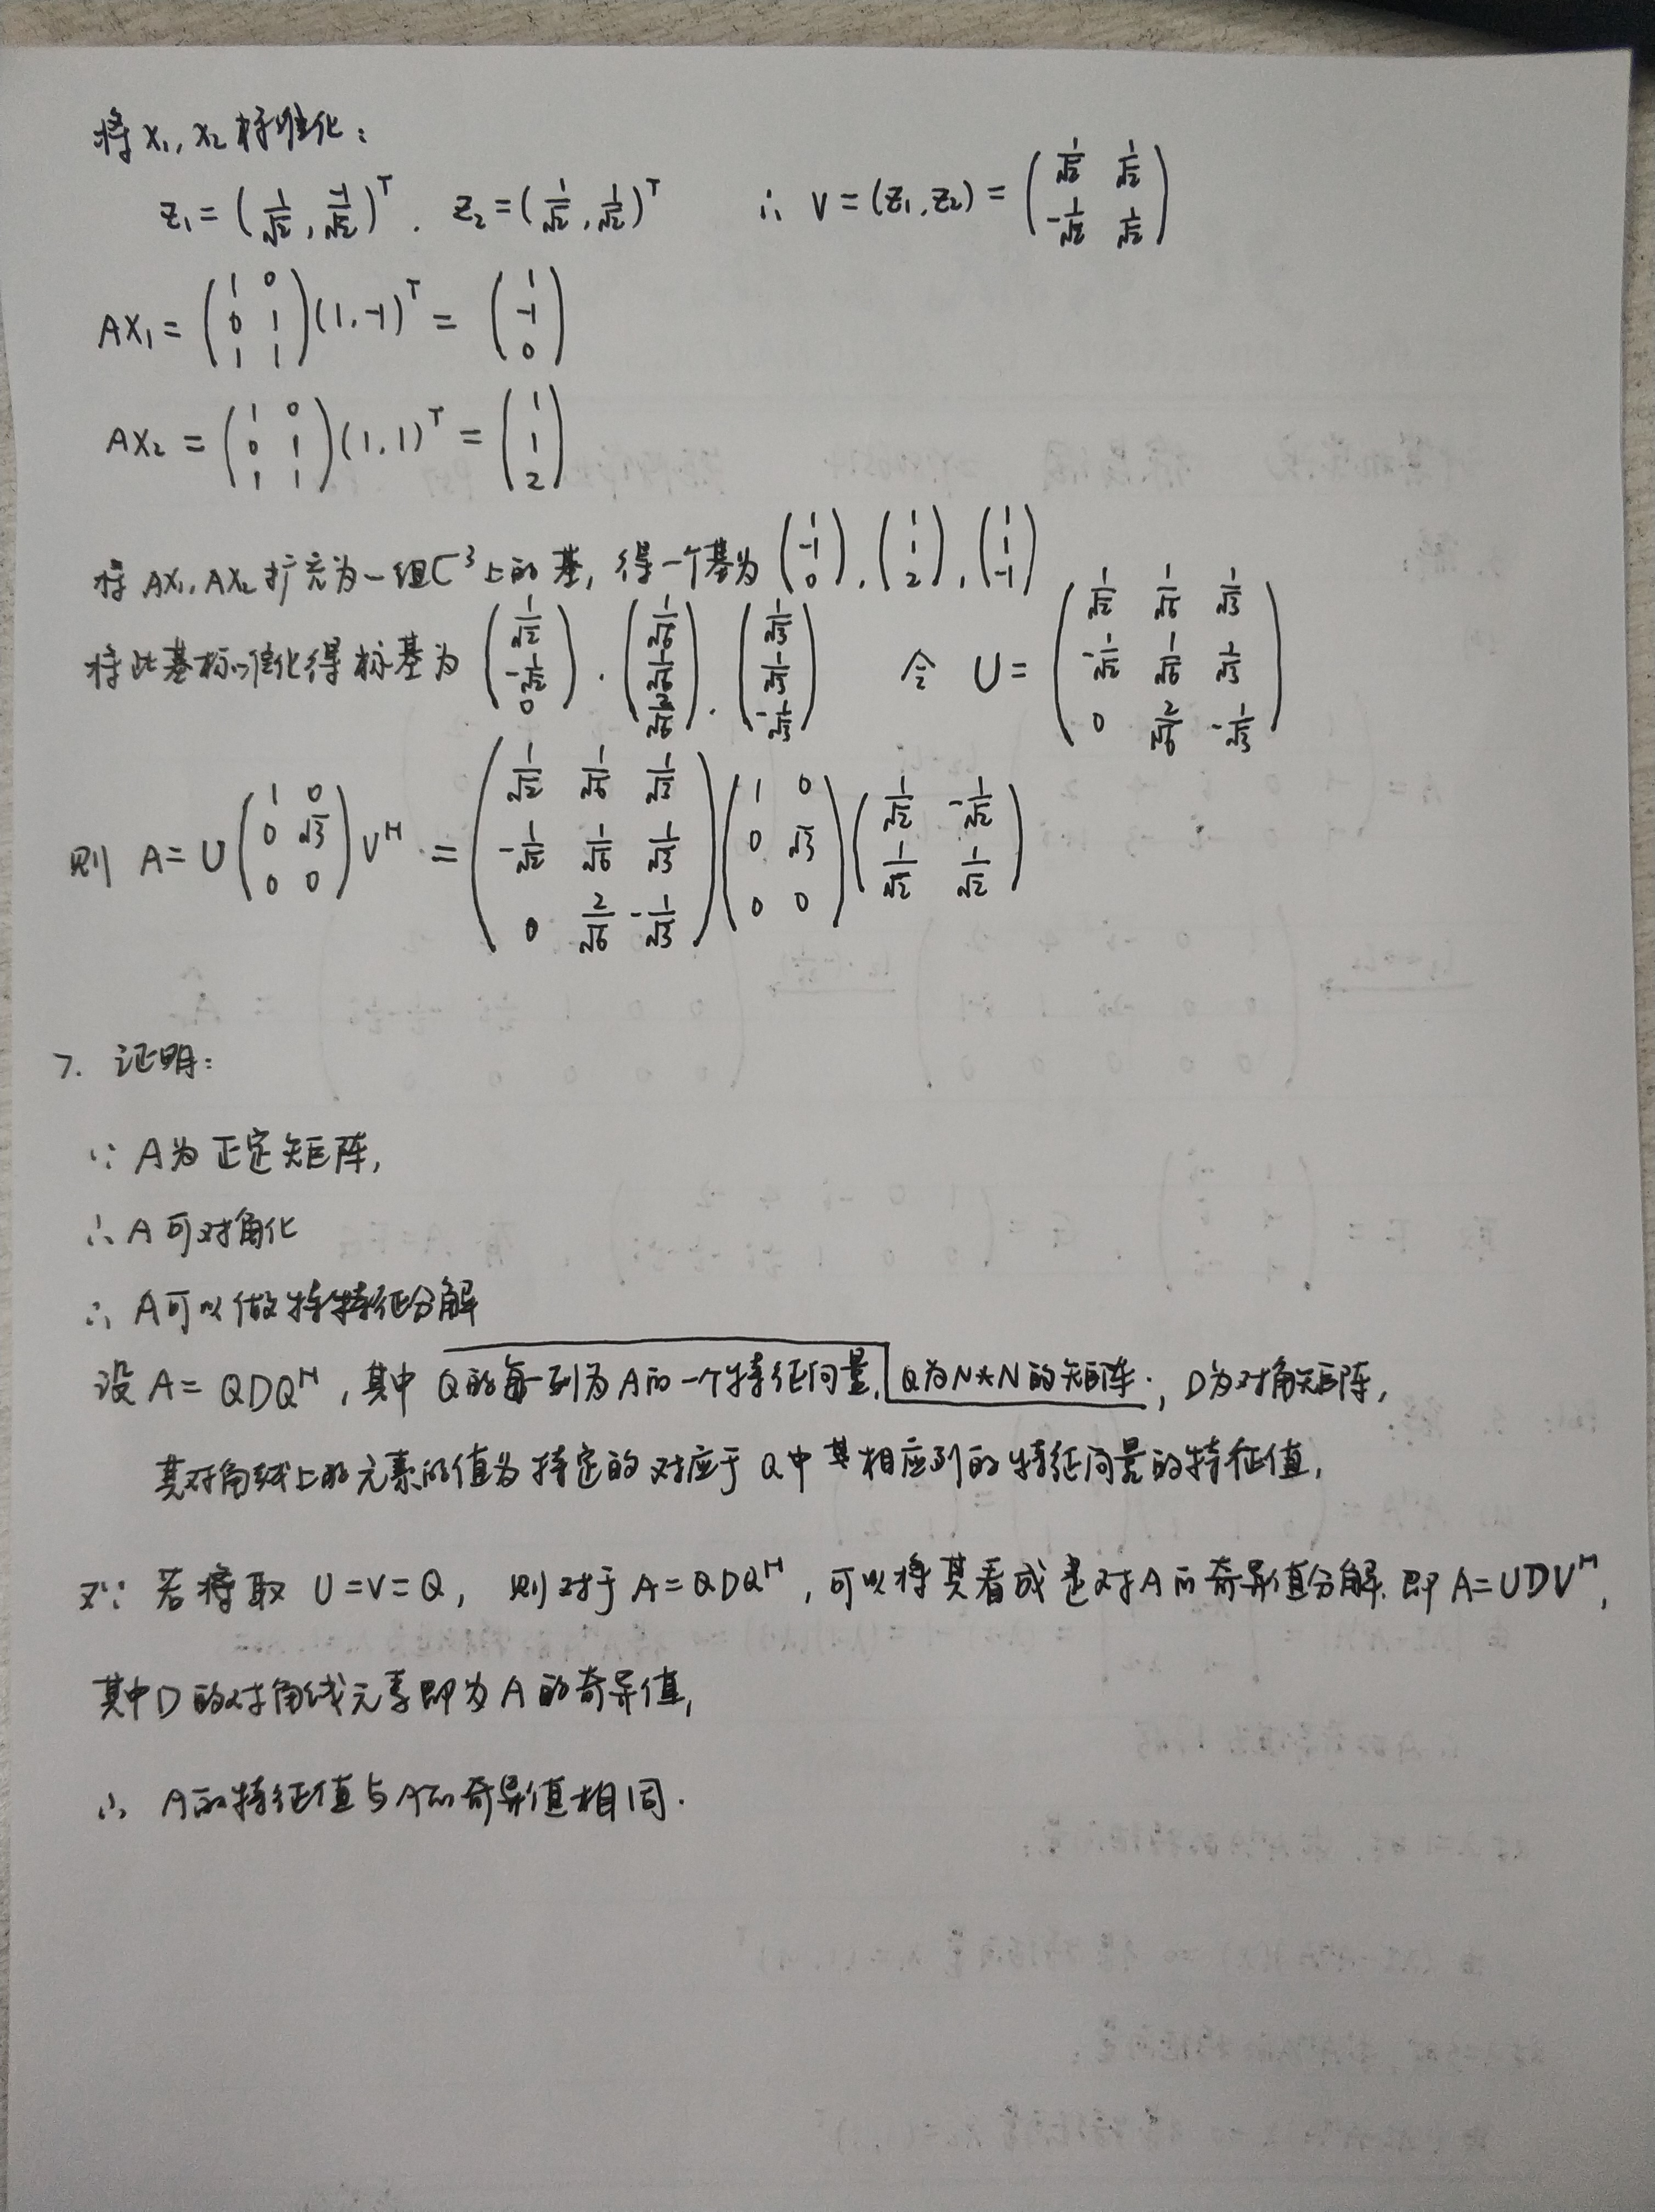 将 x₁, x₂ 标准化:
z₁ = (1/√2, -1/√2)ᵀ. z₂ = (1/√2, 1/√2)ᵀ ∴ V = (z₁, z₂) = (1/√2 1/√2; -1/√2 1/√2)
AX₁ = (1 0; 0 1; 1 1)(1, -1)ᵀ = (1; -1; 0)
AX₂ = (1 0; 0 1; 1 1)(1, 1)ᵀ = (1; 1; 2)
将 AX₁, AX₂ 扩充为一组C³上的基, 得一个基为 (1; -1; 0), (1; 1; 2), (1; 1; -1)
将此基标准化得标基为 (1/√2; -1/√2; 0), (1/√6; 1/√6; 2/√6), (1/√3; 1/√3; -1/√3) 令 U = (1/√2 1/√6 1/√3; -1/√2 1/√6 1/√3; 0 2/√6 -1/√3)
则 A = U(1 0; 0 √3; 0 0)Vᴴ = (1/√2 1/√6 1/√3; -1/√2 1/√6 1/√3; 0 2/√6 -1/√3)(1 0; 0 √3; 0 0)(1/√2 -1/√2; 1/√2 1/√2)
7. 证明:
∵ A为正定矩阵,
∴ A可对角化
∴ A可以做特征分解
设 A = QDQᴴ, 其中 Q的每一列为A的一个特征向量, Q为N*N的矩阵; D为对角矩阵,
其对角线上的元素的值为特定的对应于Q中其相应列的特征向量的特征值,
又∵ 若将取 U=V=Q, 则对于 A=QDQᴴ, 可以将其看成是对A的奇异值分解. 即 A=UDVᴴ,
其中D的对角线元素即为A的奇异值,
∴ A的特征值与A的奇异值相同.